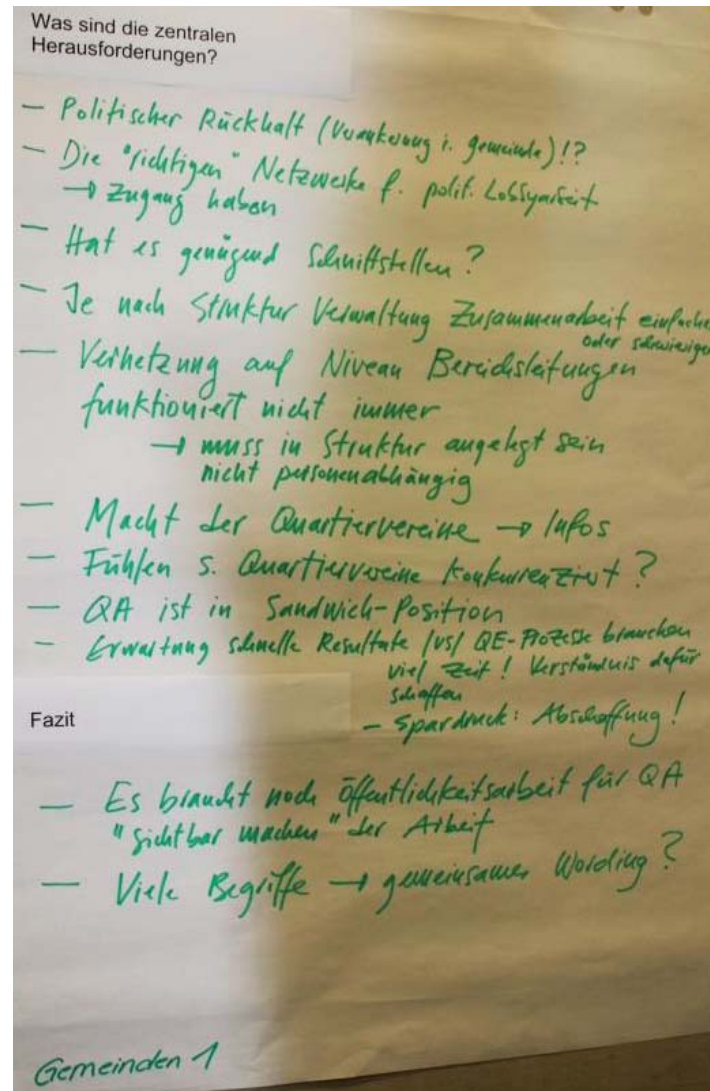 Was sind die zentralen
Herausforderungen?
– Politischer Rückhalt (Verankerung i. Gemeinde)!?
– Die "richtigen" Netzwerke f. polit. Lobbyarbeit
→ Zugang haben
– Hat es genügend Schnittstellen?
– Je nach Struktur Verwaltung Zusammenarbeit einfacher
oder schwieriger
– Vernetzung auf Niveau Bereichsleitungen
funktioniert nicht immer
→ muss in Struktur angelegt sein
nicht personenabhängig
– Macht der Quartiervereine → Infos
– Fühlen s. Quartiervereine konkurrenziert?
– QA ist in Sandwich-Position
– Erwartung schnelle Resultate /vs/ QE-Prozesse brauchen
viel Zeit! Verständnis dafür
schaffen
– Spardruck: Abschaffung!
Fazit
– Es braucht noch Öffentlichkeitsarbeit für QA
"sichtbar machen" der Arbeit
– Viele Begriffe → gemeinsames Wording?
Gemeinden 1